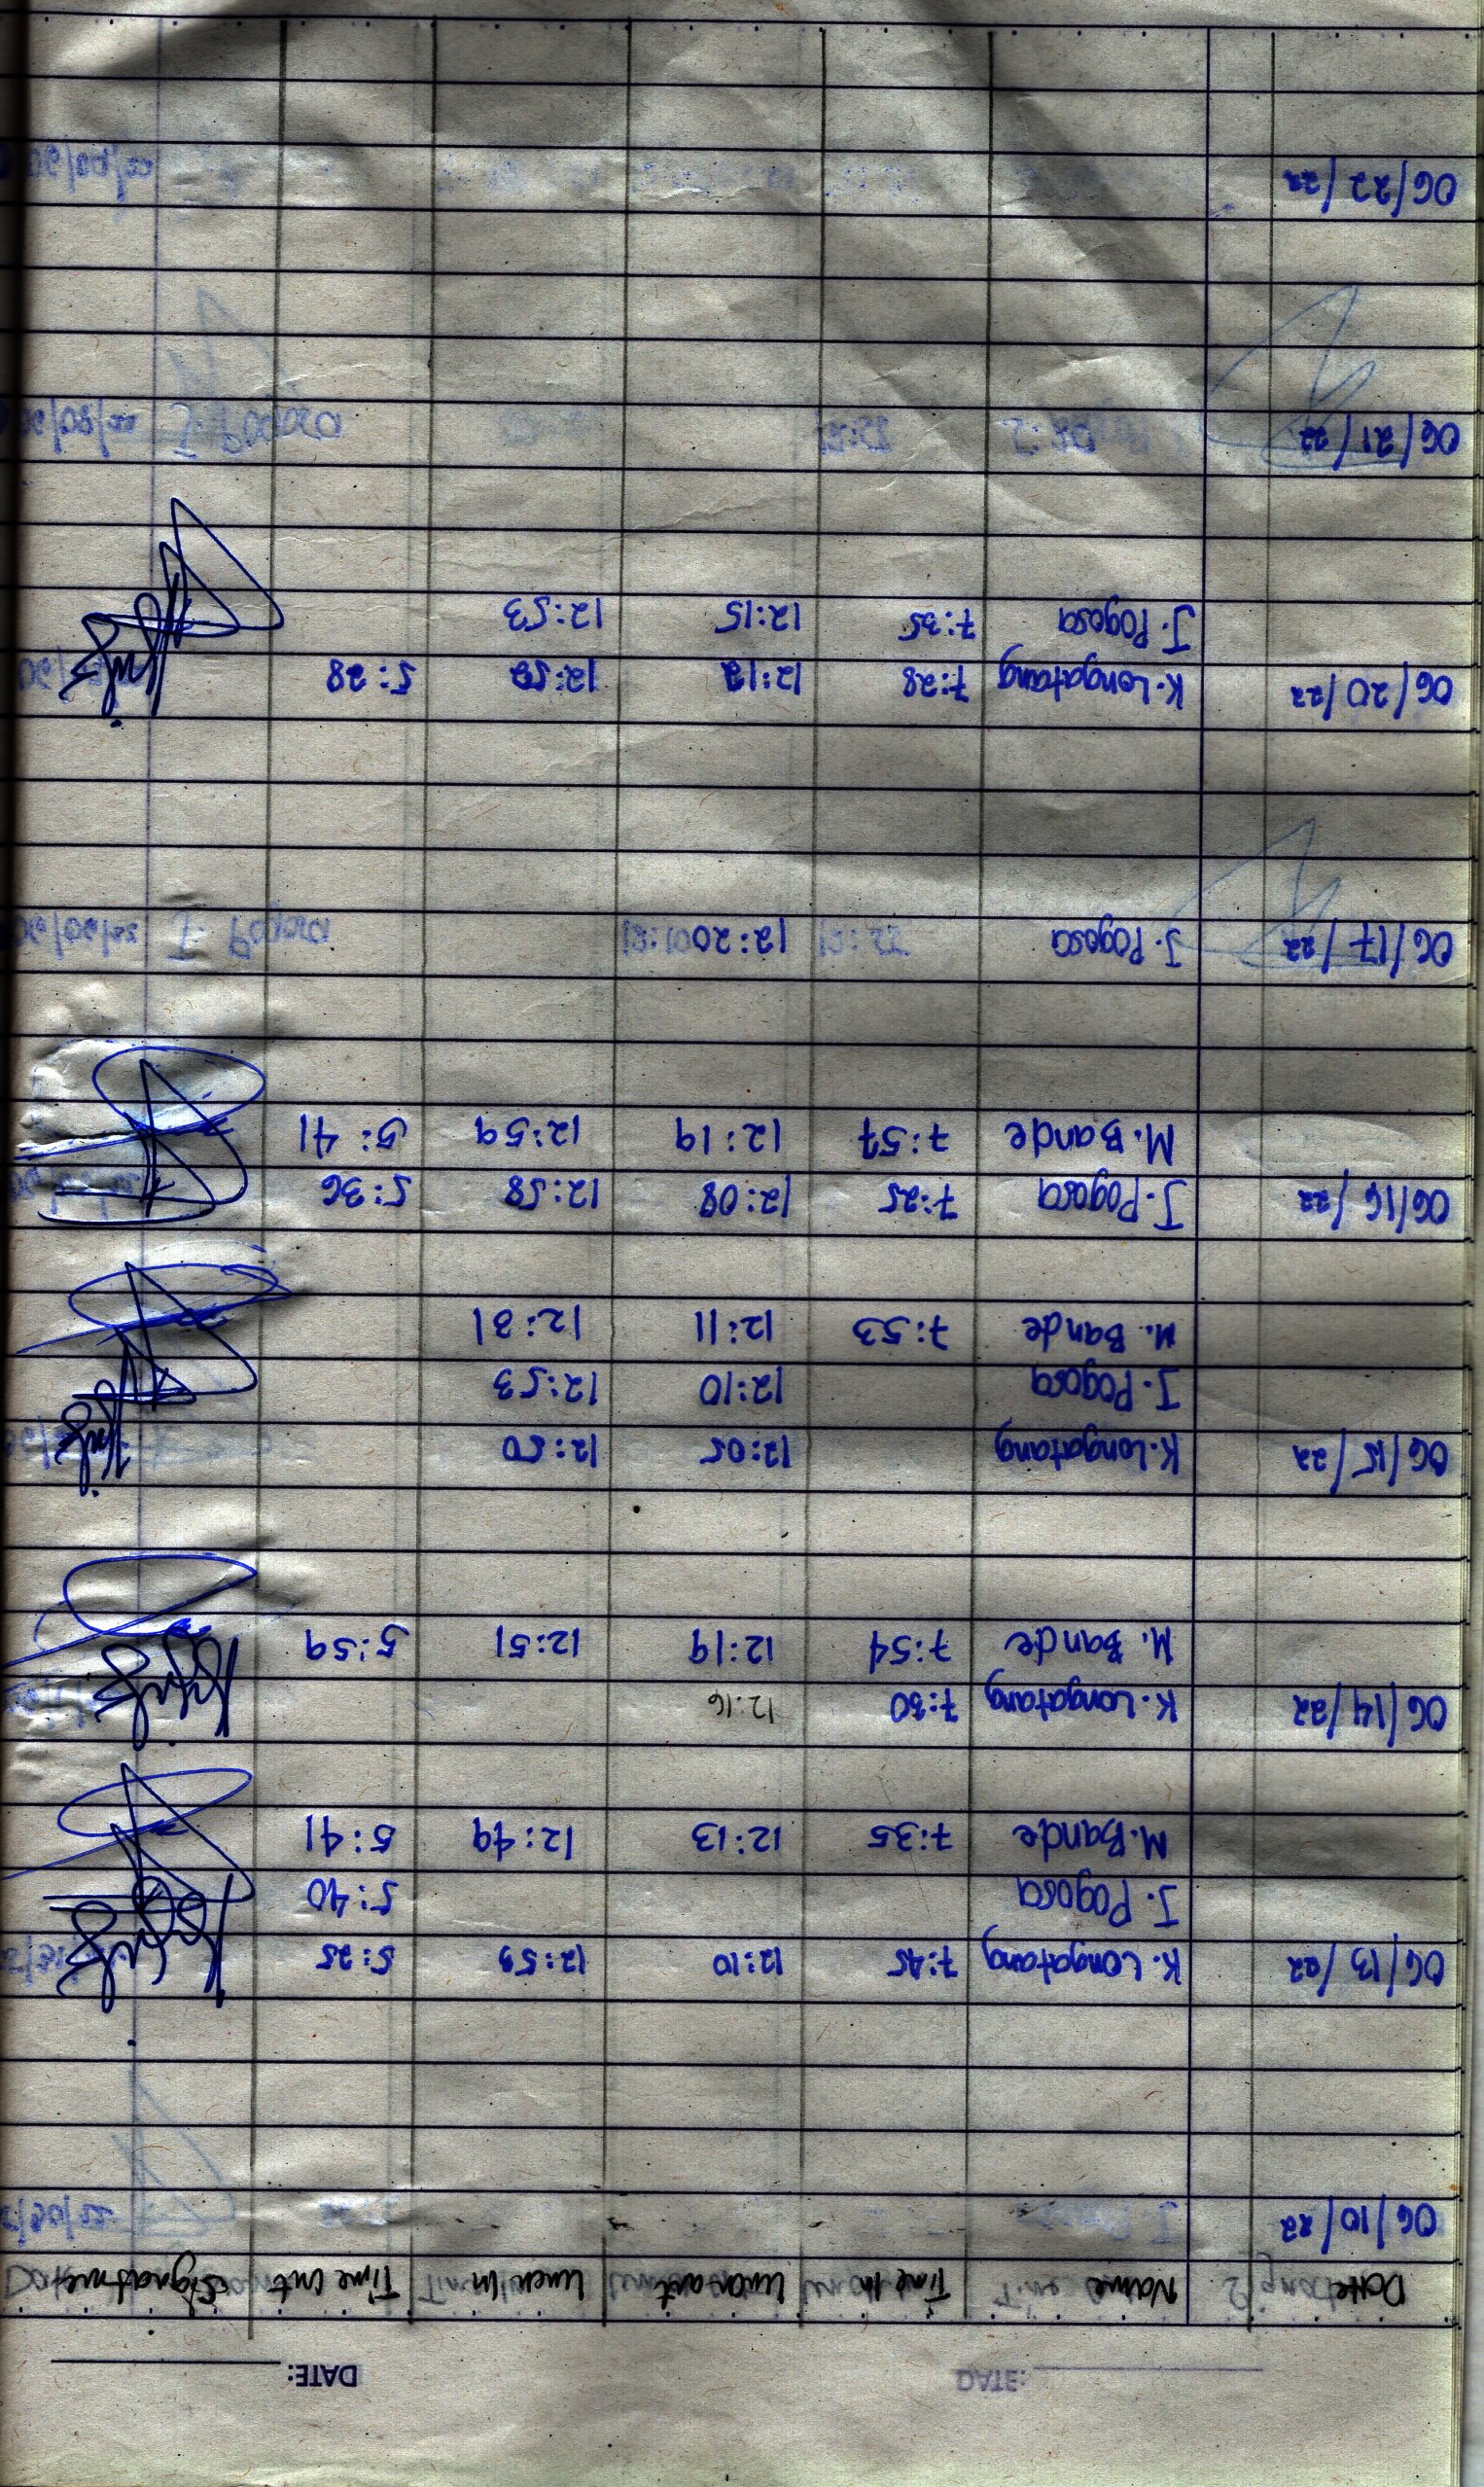 DATE:
Date Name Time In Lunch out Lunch In Time Out Signature
06/10/22
06/13/22 K. Longatang 7:45 12:10 12:53 5:25
J. Pogosa 5:40
M. Bande 7:35 12:13 12:49 5:41
06/14/22 K. Longatang 7:30 12:16
M. Bande 7:54 12:19 12:51 5:59
06/15/22 K. Longatang 12:05 12:50
J. Pogosa 12:10 12:53
M. Bande 7:53 12:11 12:31
06/16/22 J. Pogosa 7:25 12:08 12:58 5:36
M. Bande 7:57 12:19 12:59 5:41
06/17/22 J. Pogosa 12:20
06/20/22 K. Longatang 7:28 12:12 12:52 5:28
J. Pogosa 7:35 12:15 12:53
06/21/22
06/22/22